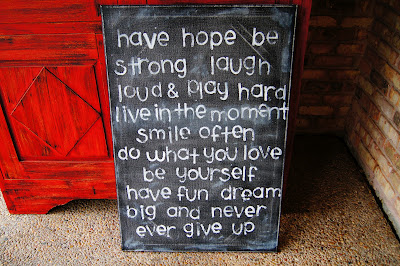 have hope be
strong laugh
loud & play hard
live in the moment
smile often
do what you love
be yourself
have fun dream
big and never
ever give up